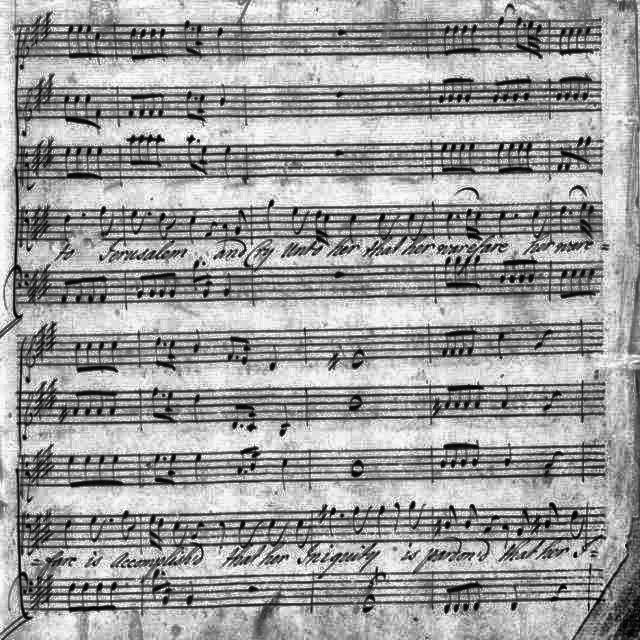 to Jerusalem, and Cry Unto her that her warefare, her ware =
= fare is Accomplish'd that her Iniquity is pardon'd that her I =